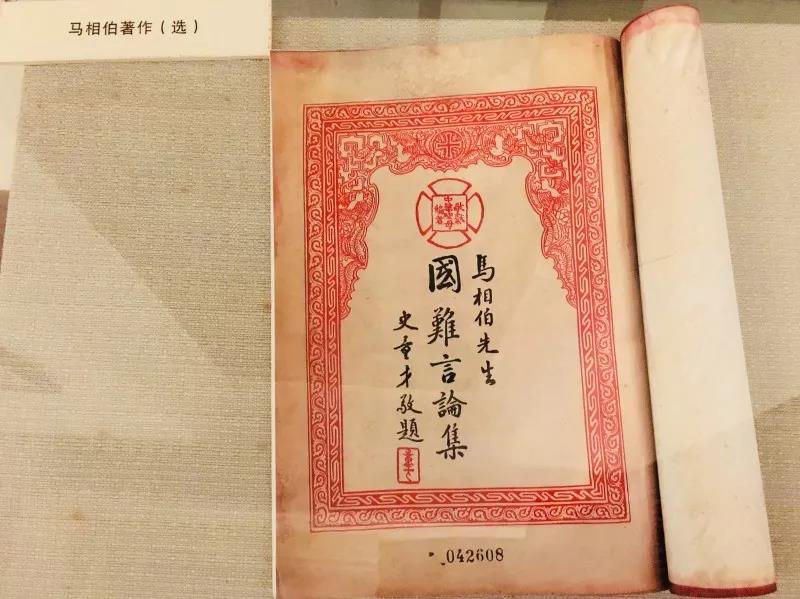 马相伯著作（选）
馬相伯先生
國難言論集
史量才敬題
042608